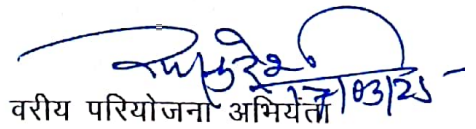 17/03/25
वरीय परियोजना अभियंता